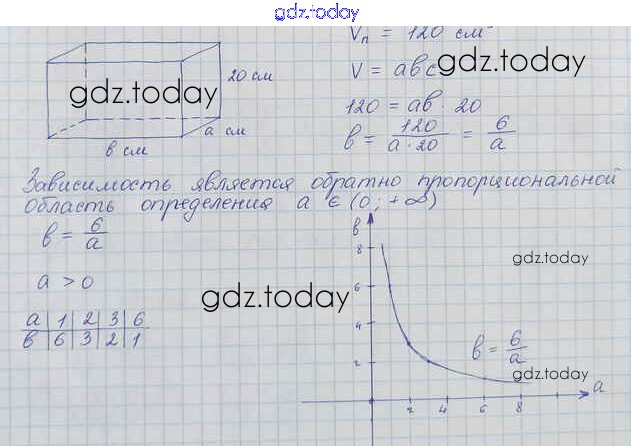 gdz.today
Vп = 120 см
V = abc
gdz.today
20 см
gdz.today
a см
в см
120 = ab · 20
в = 120/(a · 20) = 6/a
Зависимость является обратно пропорциональной
область определения a ∈ (0; +∞)
в = 6/a
a > 0
a | 1 | 2 | 3 | 6
в | 6 | 3 | 2 | 1
gdz.today
в
8
6
4
2
gdz.today
в = 6/a
gdz.today
2 4 6 8
a